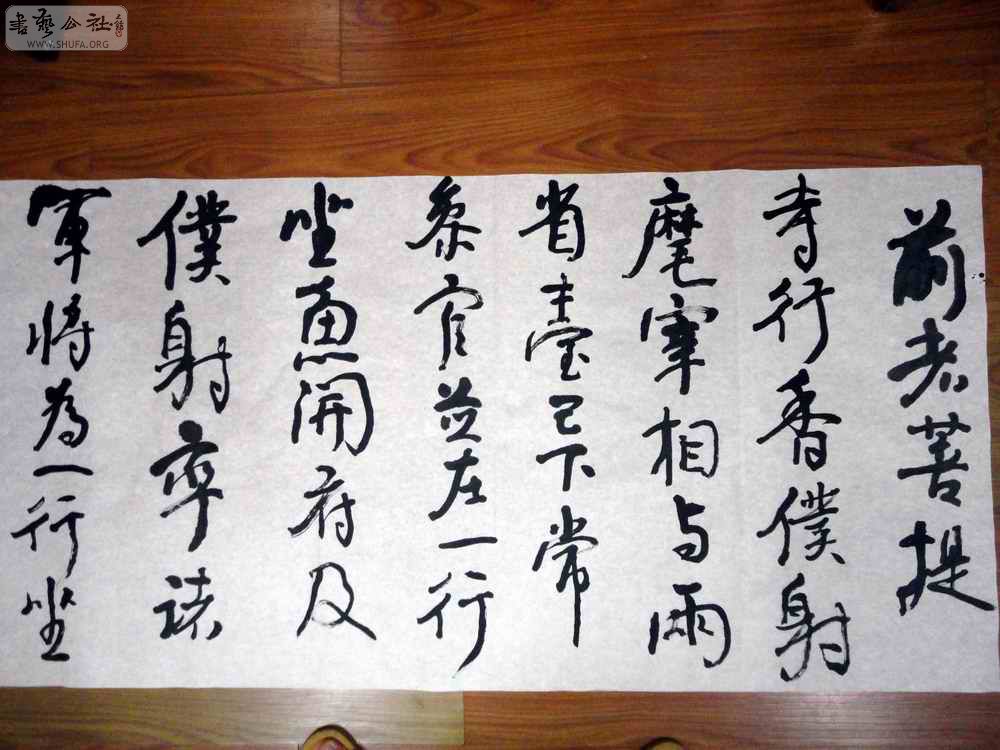 書藝公社
WWW.SHUFA.ORG
前者菩提
寺行香僕射
麾宰相与兩
省臺已下常
叅官並在一行
坐魚開府及
僕射率諸
軍將為一行坐